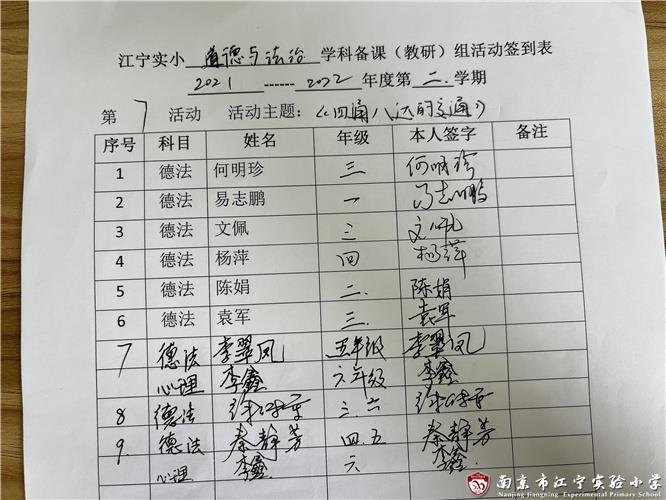 江宁实小 道德与法治 学科备课（教研）组活动签到表
2021 ------ 2022 年度第 二 学期
第 7 活动 活动主题：《四通八达的交通》
序号 科目 姓名 年级 本人签字 备注
1 德法 何明珍 三 何明珍
2 德法 易志鹏 一 易志鹏
3 德法 文佩 三 文佩
4 德法 杨萍 四 杨萍
5 德法 陈娟 二. 陈娟
6 德法 袁军 三. 袁军
7 德法 李翠凤 五年级 李翠凤
心理 李鑫 六年级 李鑫
8 德法 三.六
9. 德法 秦静芳 四.五 秦静芳
心理 李鑫 六 李鑫.
南京市江宁实验小学
Nanjing Jiangning Experimental Primary School